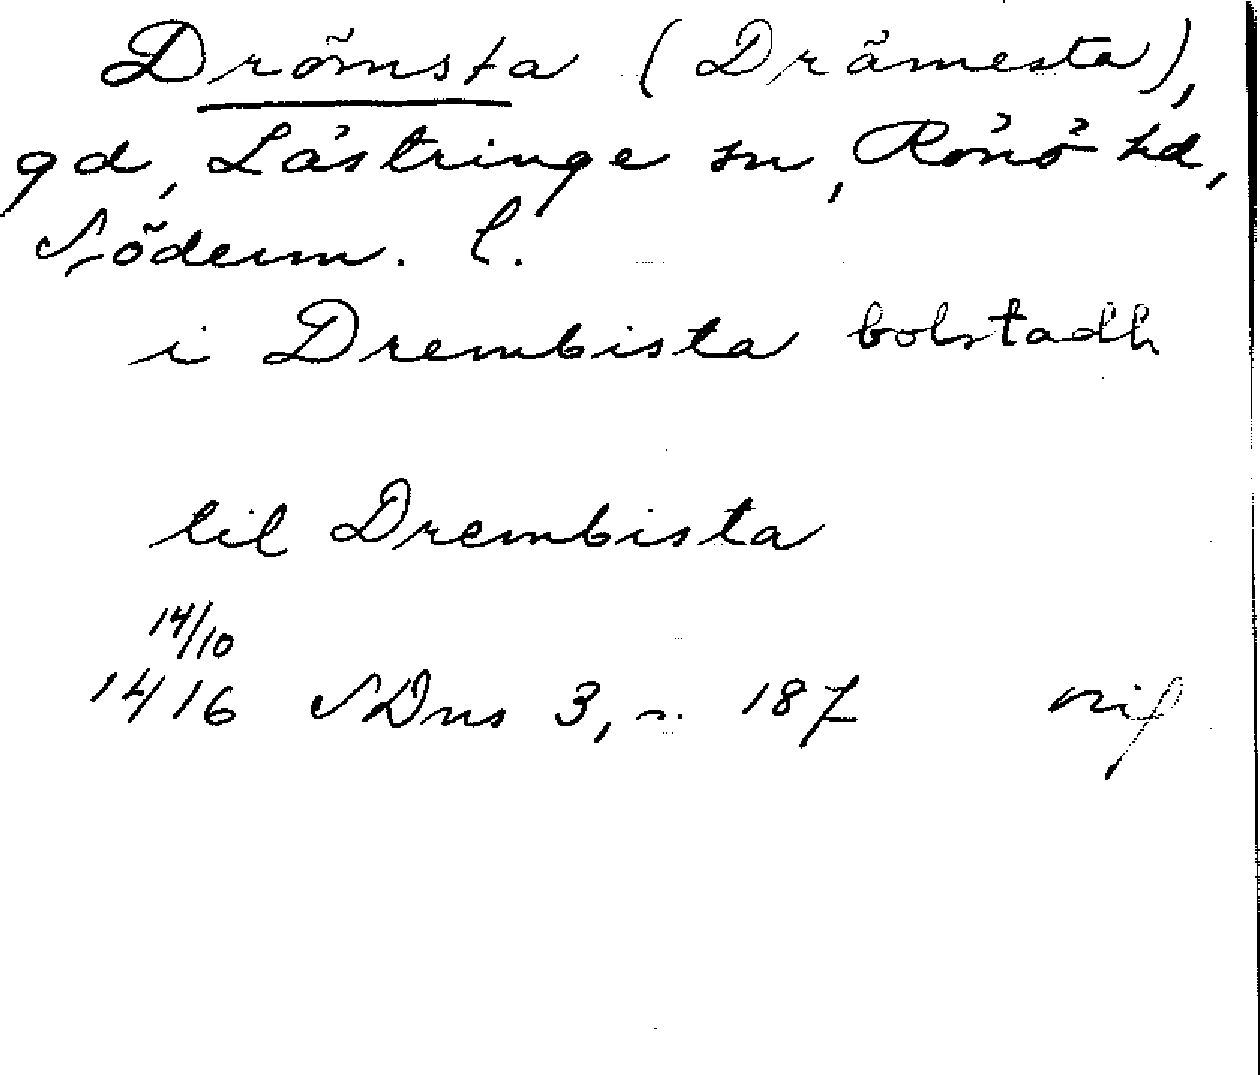 Drömsta (Drämesta),
gd, Lästringe sn, Rönö hd,
Söderm. l.
i Drembista bolstadh
til Drembista
14/10
1416 SDns 3, s. 187 orig